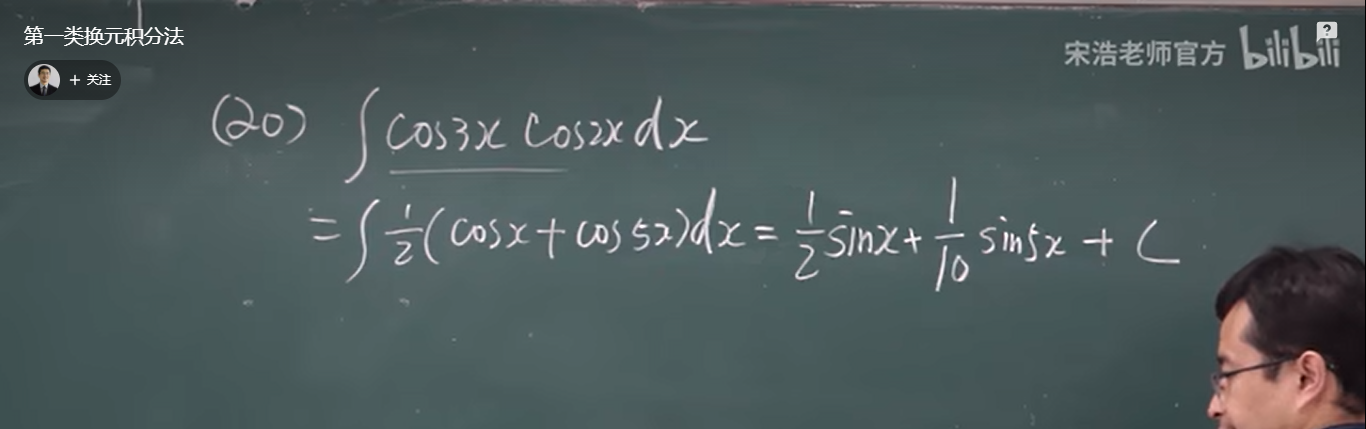 第一类换元积分法
宋浩老师官方 bilibili
+ 关注
(20) ∫cos3x cos2x dx
= ∫ 1/2 (cosx + cos5x) dx = 1/2 sinx + 1/10 sin5x + C